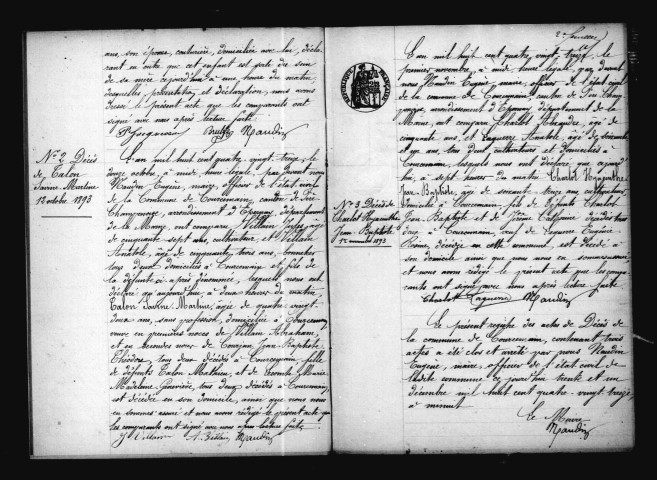 ans, son épouse, couturière, domiciliée avec lui, décla
rant en outre que cet enfant est
de sa mère cejourd'hui à une heure du matin
lesquelles présentation et déclaration, nous avons
dressé le présent acte que les comparants ont
signé avec nous après lecture faite
Naudin
N° 2 Décès
de Talon
Savine Martine
12 octobre 1893
L'an mil huit cent quatre vingt treize, le
douze octobre, à midi, heure légale, par devant nous
Naudin Eugène, maire, officier de l'état civil
de la Commune de Courcemain, canton de Fère
Champenoise, arrondissement d'Epernay, département
de la Marne, ont comparu Villain Jules, âgé
de cinquante sept ans, cultivateur, et Villain
Anatole, âgé de cinquante trois ans, bonnetier
tous deux domiciliés à Courcemain et fils de
la défunte ci après dénommée, lesquels nous ont
déclaré qu'aujourd'hui à deux heures du matin
Talon Savine Martine, âgée de quatre vingt
douze ans, sans profession, domiciliée à Courcemain
veuve en premières noces de Villain Abraham,
et en secondes noces de Jean Baptiste
Théodore, tous deux décédés à Courcemain, fille
de défunts Talon Mathieu, et de Marie
Madeleine Geneviève, tous deux décédés à Courcemain
est décédée en son domicile, ainsi que nous nous
en sommes assuré et nous avons rédigé le présent acte que
les comparants ont signé avec nous après lecture faite
J Villain A. Villain Naudin
2e
RÉPUBLIQUE FRANÇAISE
L'an mil huit cent quatre vingt treize, le
premier novembre, à midi, heure légale, par devant
nous Naudin Eugène, maire, officier de l'état civil
de la commune de Courcemain, canton de Fère Cham
penoise, arrondissement d'Epernay, département de la
Marne, ont comparu Charlot Alexandre, âgé de
cinquante ans, et Laguerre Anatole, âgé de soixante
et un ans, tous deux cultivateurs et domiciliés à
Courcemain, lesquels nous ont déclaré que cejourd
hui, à sept heures du matin Charlot Hyacinthe
Jean Baptiste, âgé de soixante treize ans, cultivateur
domicilié à Courcemain, fils de défunts Charlot
Jean Baptiste et de décédés tous
deux à Courcemain, veuf de Laguerre Eugénie
décédée en cette commune, est décédé à
son domicile ainsi que nous nous en sommes assuré
et nous avons rédigé le présent acte que les compa
rants ont signé avec nous après lecture faite
Charlot Laguerre Naudin
N° 3 Décès de
Charlot Hyacinthe
Jean Baptiste
1er novembre 1893
Le présent registre des actes de Décès de
la commune de Courcemain, contenant trois
actes a été clos et arrêté par nous Naudin
Eugène, maire, officier de l'état civil de
ladite commune ce jourd'hui trente et un
décembre mil huit cent quatre vingt treize
à minuit
Le Maire
Naudin